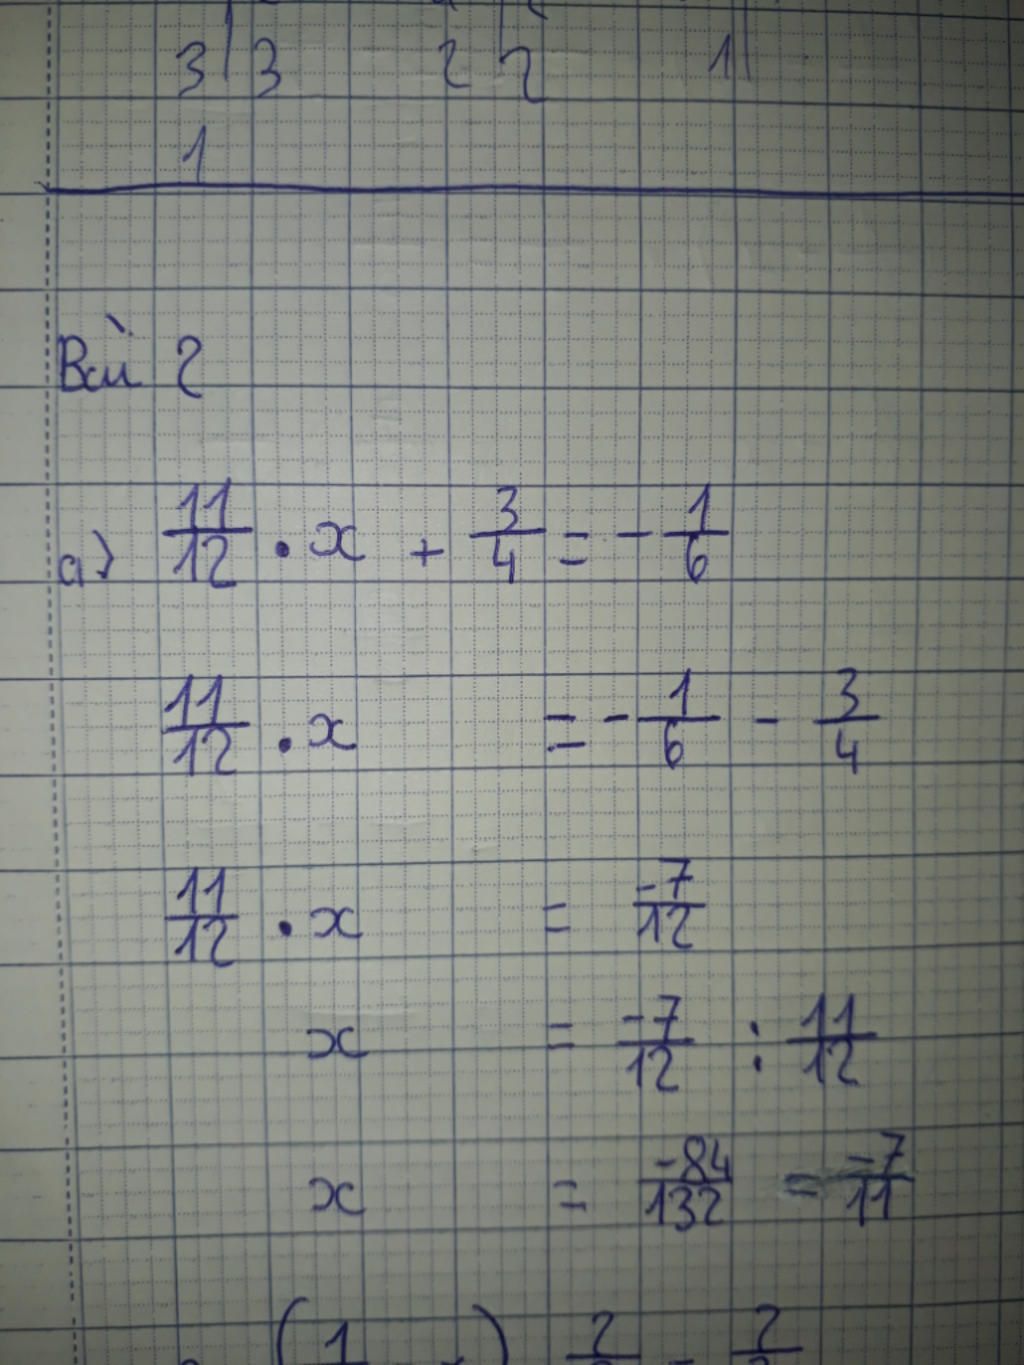 3 | 3 2 | 2 1 |
1
Bài 2
a) 11/12 . x + 3/4 = - 1/6
11/12 . x = - 1/6 - 3/4
11/12 . x = -7/12
x = -7/12 : 11/12
x = -84/132 = -7/11
( 1 ) 2 2